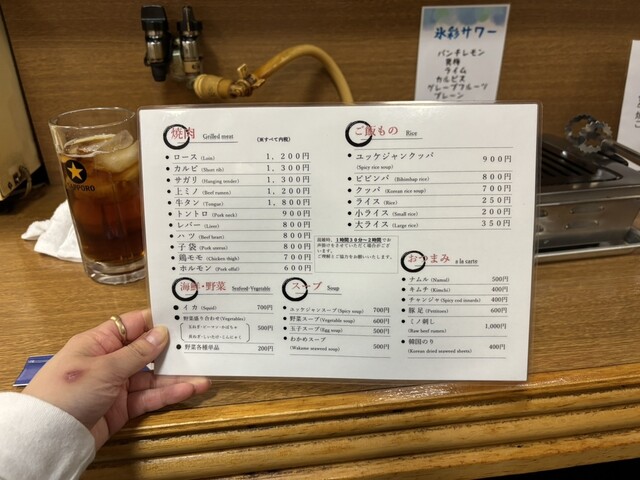 氷彩サワー
パンチレモン
巨峰
ライム
カルピス
グレープフルーツ
プレーン
SAPPORO
焼肉 Grilled meat (※すべて内税)
ロース (Loin) 1,200円
カルビ (Short rib) 1,300円
サガリ (Hanging tender) 1,300円
上ミノ (Beef rumen) 1,200円
牛タン (Tongue) 1,800円
トントロ (Pork neck) 900円
レバー (Liver) 800円
ハツ (Beef heart) 800円
子袋 (Pork uterus) 800円
鶏モモ (Chicken thigh) 700円
ホルモン (Pork offal) 600円
ご飯もの Rice
ユッケジャンクッパ 900円
(Spicy rice soup)
ビビンバ (Bibimbap rice) 800円
クッパ (Korean rice soup) 700円
ライス (Rice) 250円
小ライス (Small rice) 200円
大ライス (Large rice) 350円
混雑時、1時間30分〜2時間で
お声掛けをさせていただく場合がござ
います。
ご理解とご協力をお願いいたします。
海鮮・野菜 Seafood・Vegetable
イカ (Squid) 700円
野菜盛り合わせ (Vegetables)
玉ねぎ・ピーマン・かぼちゃ 500円
長ねぎ・しいたけ・にんにく
野菜各種単品 200円
スープ Soup
ユッケジャンスープ (Spicy soup) 700円
野菜スープ (Vegetable soup) 600円
玉子スープ (Egg soup) 500円
わかめスープ 500円
(Wakame seaweed soup)
おつまみ a la carte
ナムル (Namul) 500円
キムチ (Kimchi) 400円
チャンジャ (Spicy cod innards) 400円
豚足 (Pettitoes) 600円
ミノ刺し 1,000円
(Raw beef rumen)
韓国のり 400円
(Korean dried seaweed sheets)